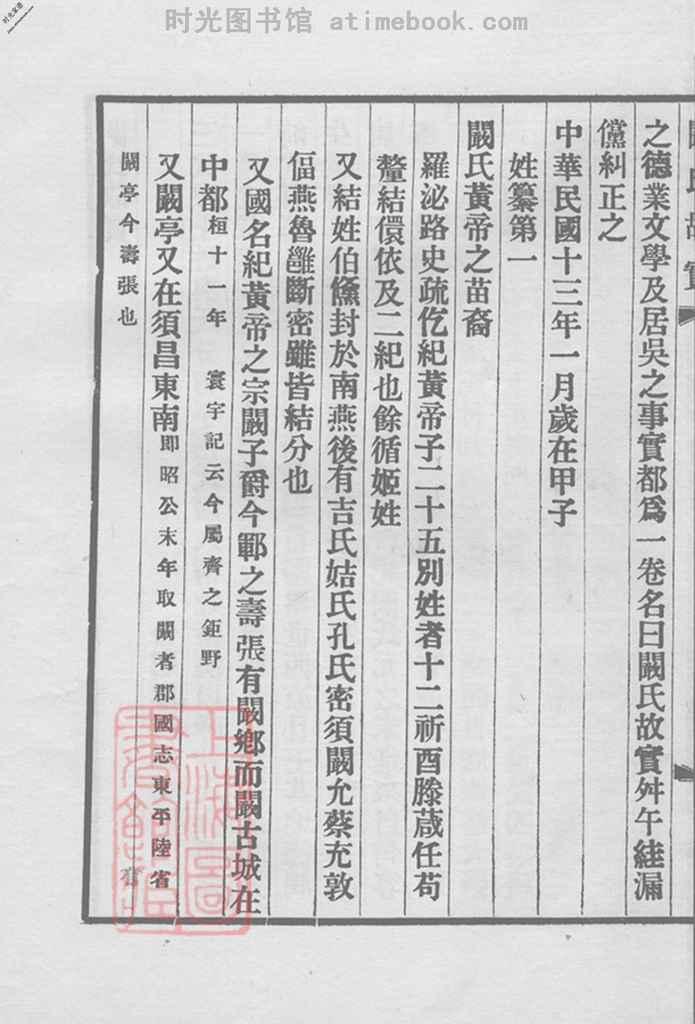 时光图书馆 atimebook.com
之德業文學及居吳之事實都爲一卷名曰闞氏故實舛午絓漏
儻糾正之
中華民國十三年一月歲在甲子
姓纂第一
闞氏黃帝之苗裔
羅泌路史疏仡紀黃帝子二十五別姓者十二祈酉滕葴任苟
釐結儇依及二紀也餘循姬姓
又結姓伯儵封於南燕後有吉氏姞氏孔氏密須闞允蔡充敦
偪燕魯雝斷密雖皆結分也
又國名紀黃帝之宗闞子爵今鄆之壽張有闞鄉而闞古城在
中都桓十一年 寰宇記云今屬齊之鉅野
又闞亭又在須昌東南即昭公末年取闞者郡國志東平陸省
闞亭今壽張也